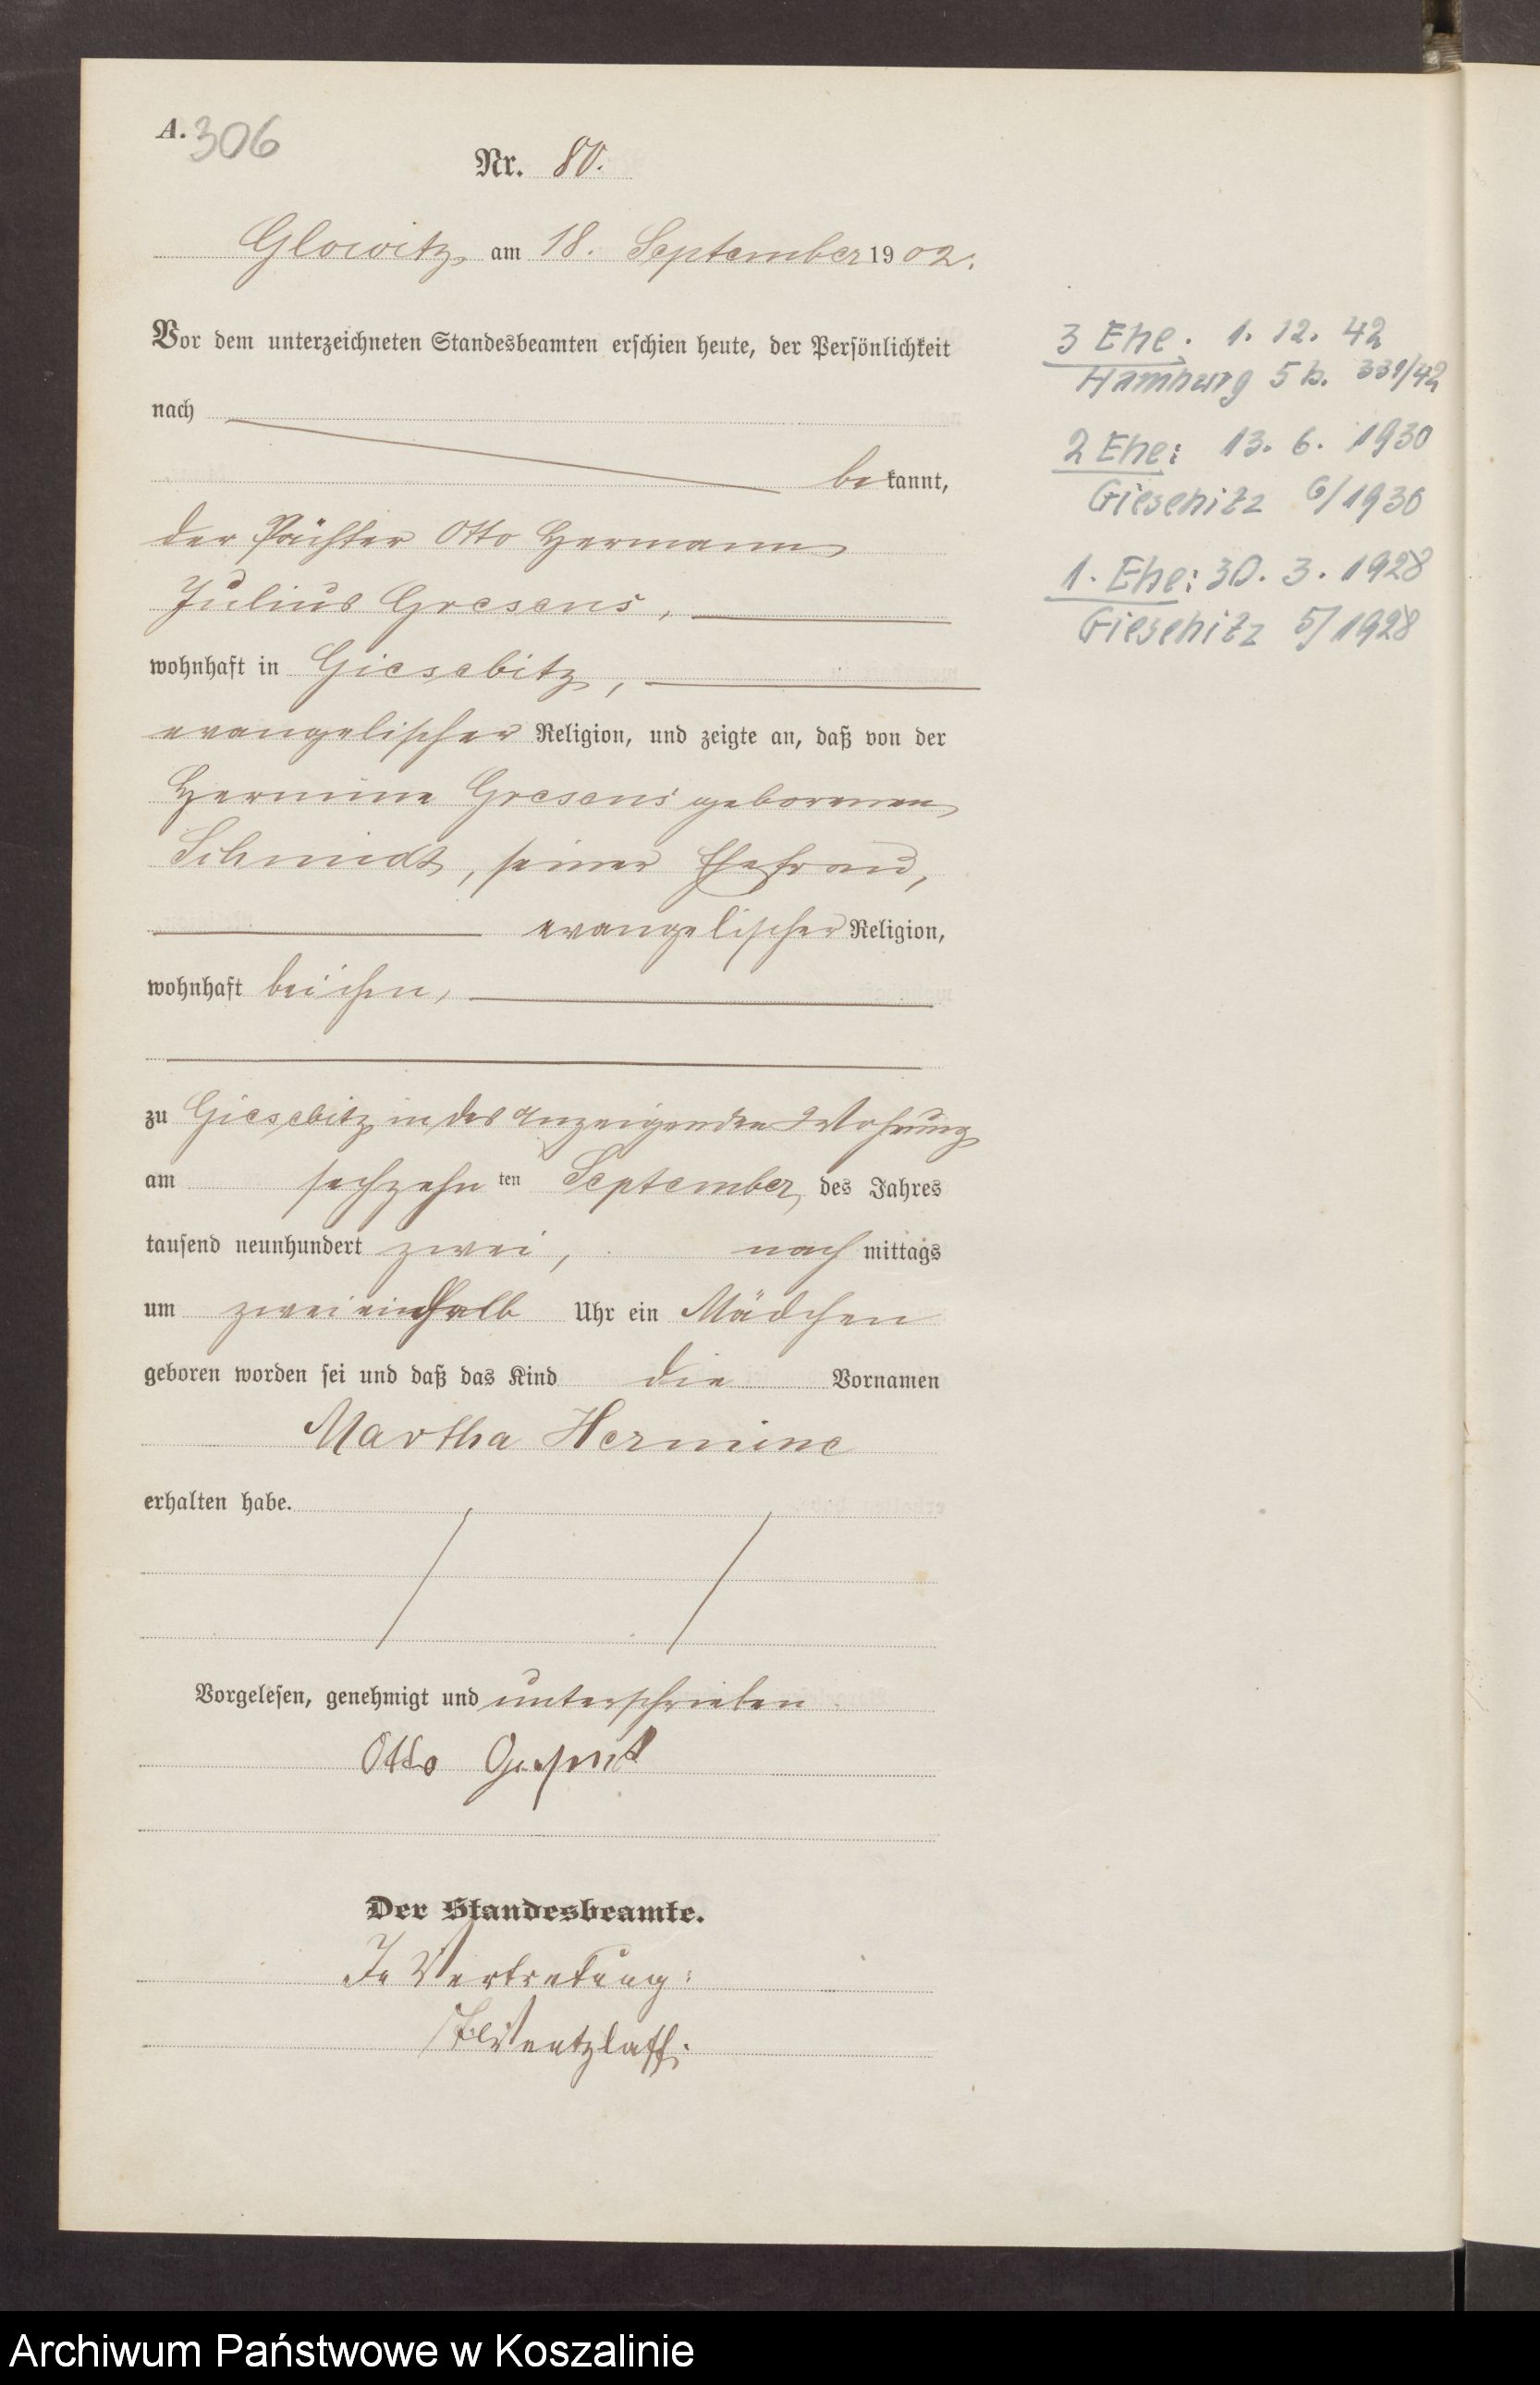 A. 306
Nr. 80.
Glowitz, am 18. September 1902.
Vor dem unterzeichneten Standesbeamten erschien heute, der Persönlichkeit
nach
bekannt,
der Pächter Otto Hermann
Julius Gresens,
wohnhaft in Giesebitz,
evangelischer Religion, und zeigte an, daß von der
Hermine Gresens geborenen
Schmidt, seiner Ehefrau,
evangelischer Religion,
wohnhaft bei ihm,
zu Giesebitz in des Anzeigenden Wohnung
am sechzehn ten September, des Jahres
tausend neunhundert zwei, nach mittags
um zweieinhalb Uhr ein Mädchen
geboren worden sei und daß das Kind die Vornamen
Martha Hermine
erhalten habe.
Vorgelesen, genehmigt und unterschrieben
Otto Gresens
Der Standesbeamte.
In Vertretung:
Wentzlaff.
3 Ehe. 1. 12. 42
Hamburg 5 b. 339/42
2 Ehe: 13. 6. 1930
Giesebitz 6/1930
1. Ehe: 30. 3. 1928
Giesebitz 5/1928
Archiwum Państwowe w Koszalinie